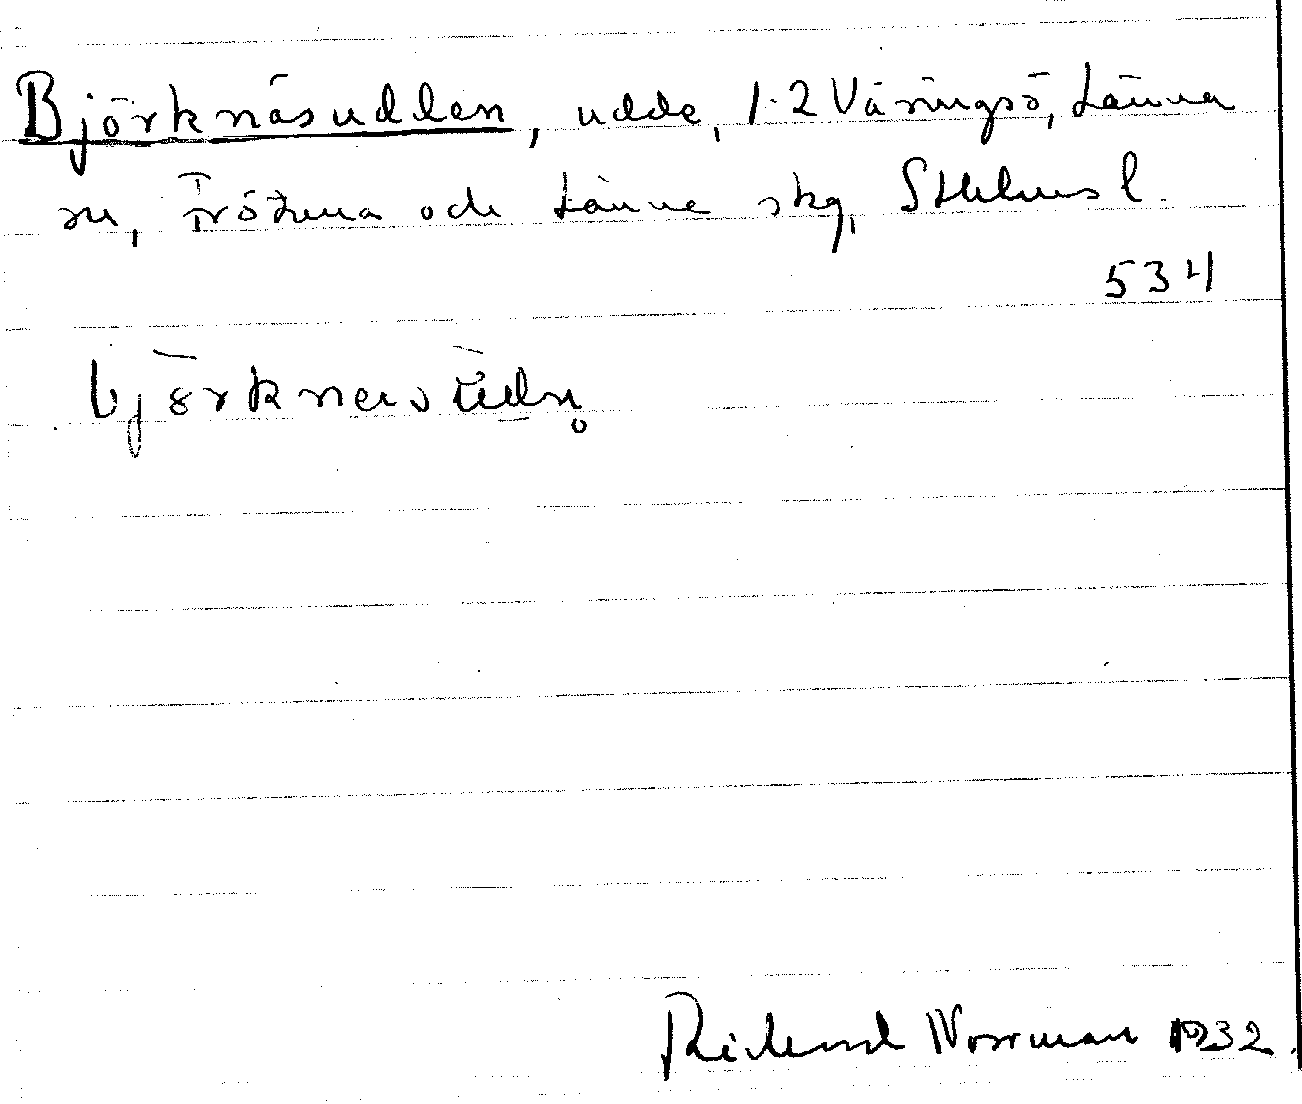 Björknäsudden, udde, 1-2 Väringsö, Länna
sn, Frötuna och Länna skg, Sthlms l.
534
Rickard Norrman 1932.